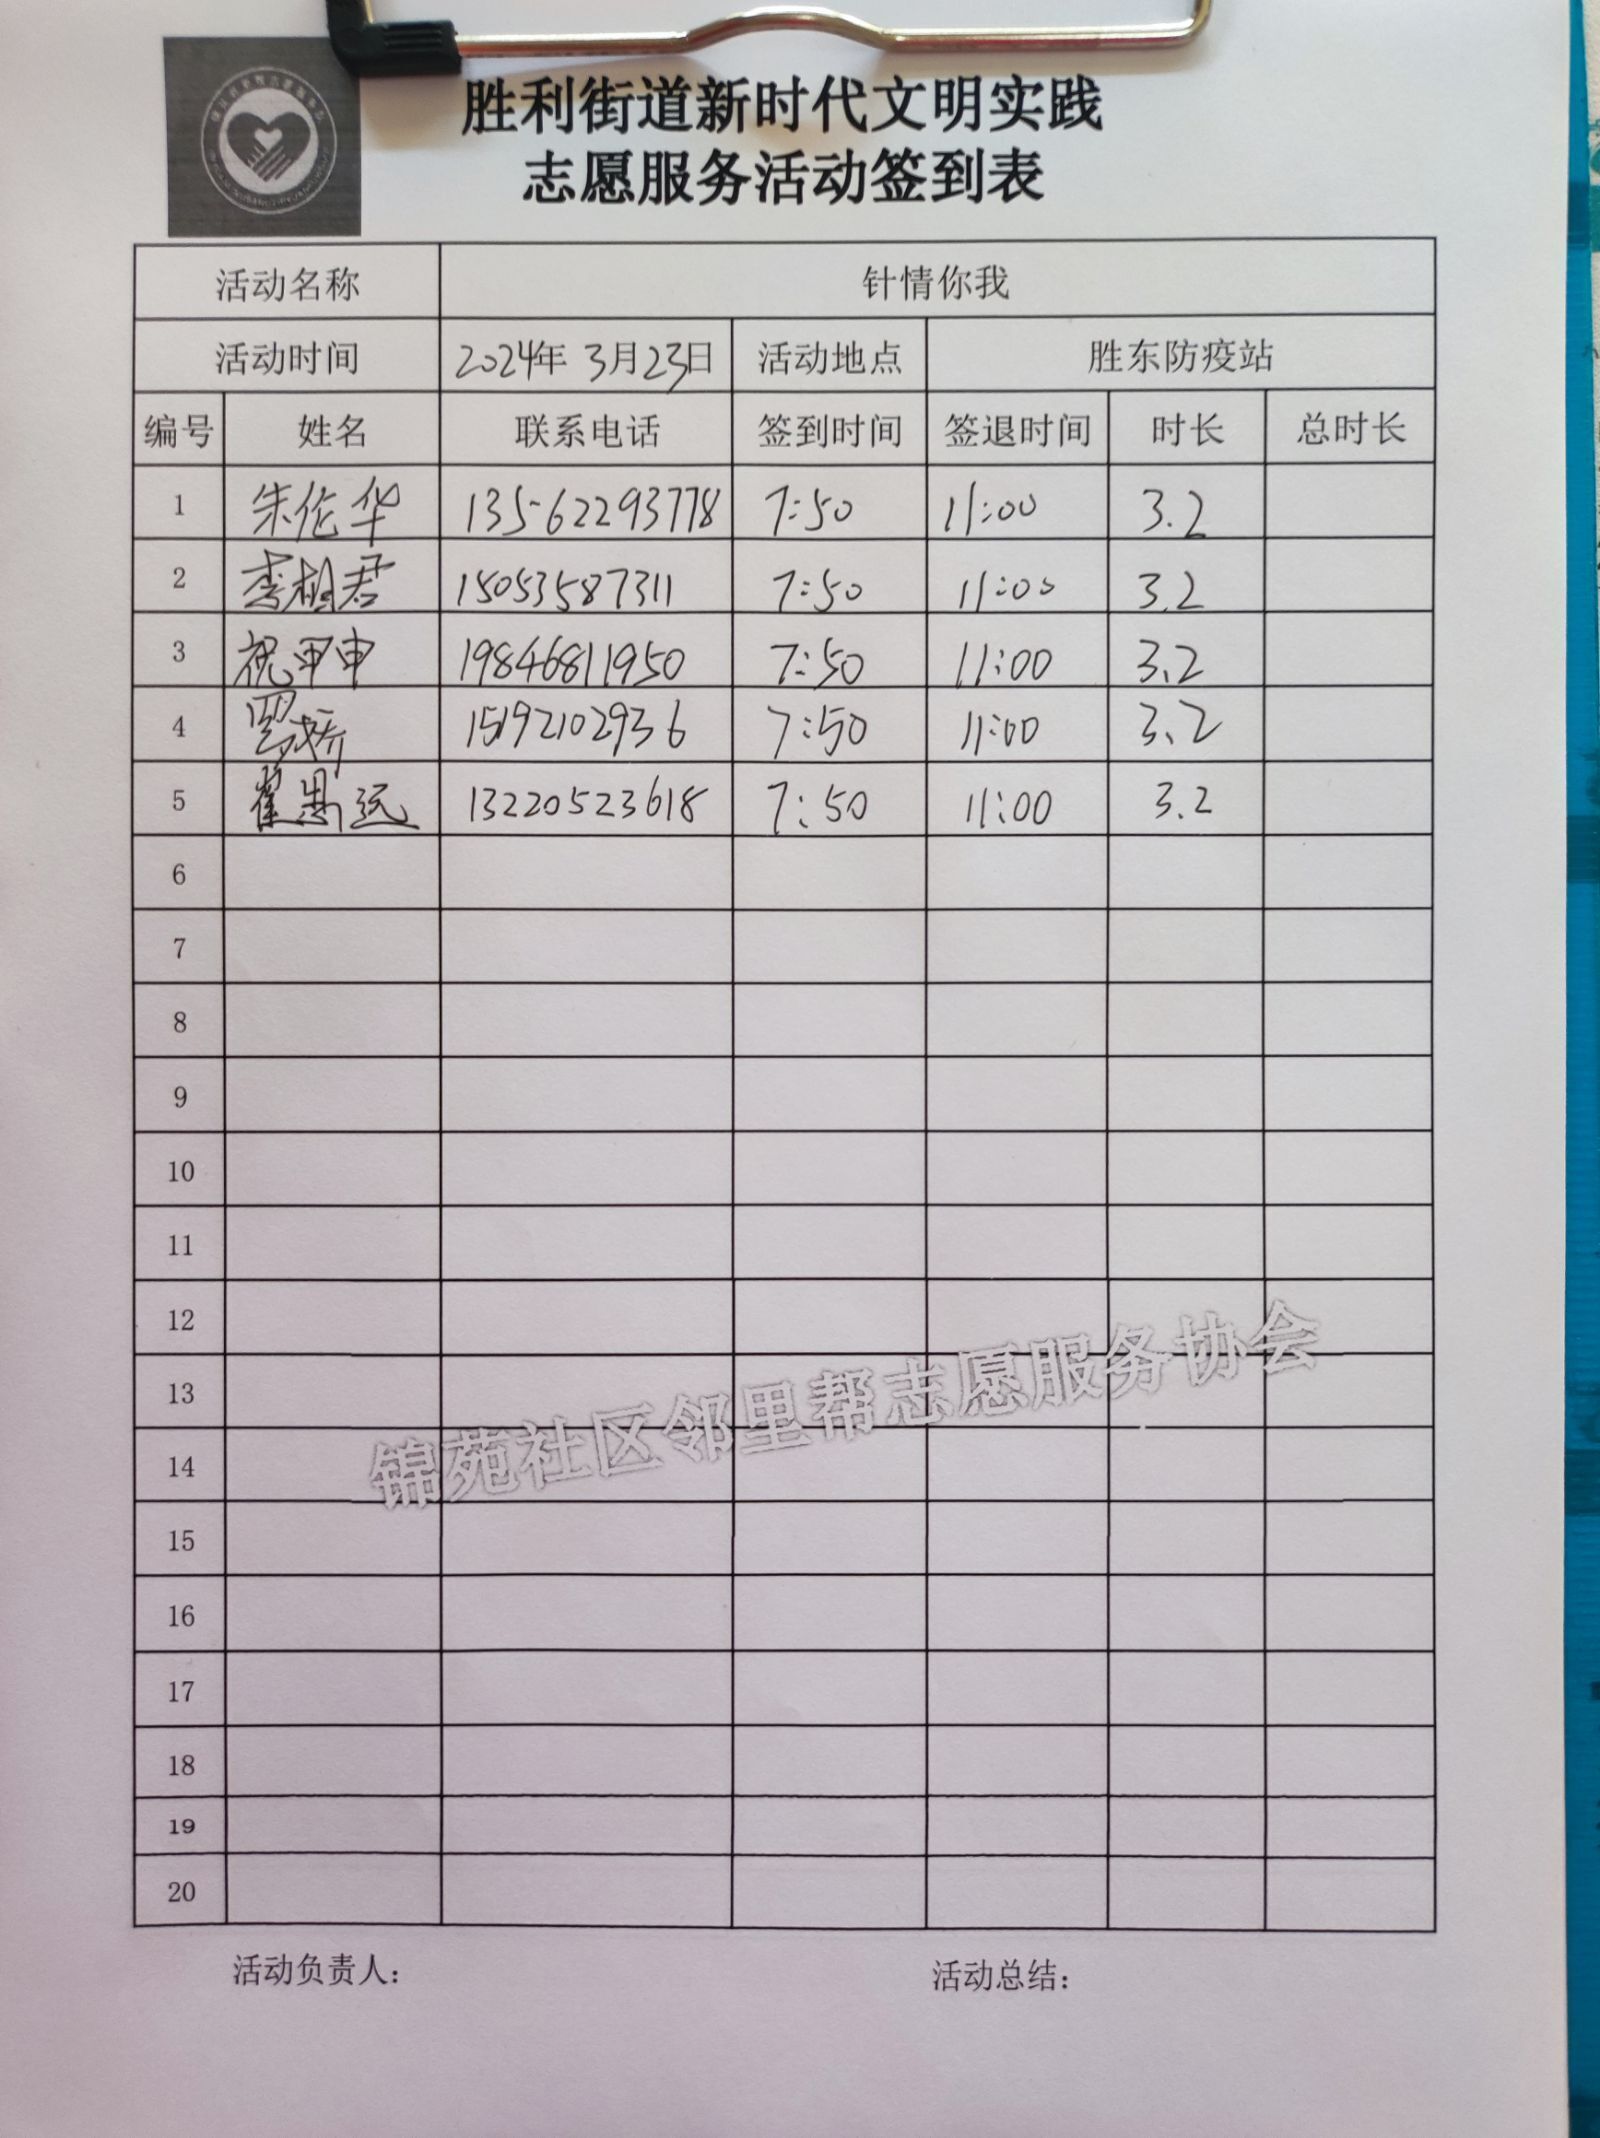 胜利街道新时代文明实践
志愿服务活动签到表
活动名称 针情你我
活动时间 2024年 3月23日 活动地点 胜东防疫站
编号 姓名 联系电话 签到时间 签退时间 时长 总时长
1 朱伦华 13562293778 7:50 11:00 3.2
2 李树君 15053587311 7:50 11:00 3.2
3 祝甲申 19846811950 7:50 11:00 3.2
4 15192102936 7:50 11:00 3.2
5 翟思远 13220523618 7:50 11:00 3.2
6
7
8
9
10
11
12
13
14
15
16
17
18
19
20
锦苑社区邻里帮志愿服务协会
活动负责人： 活动总结：